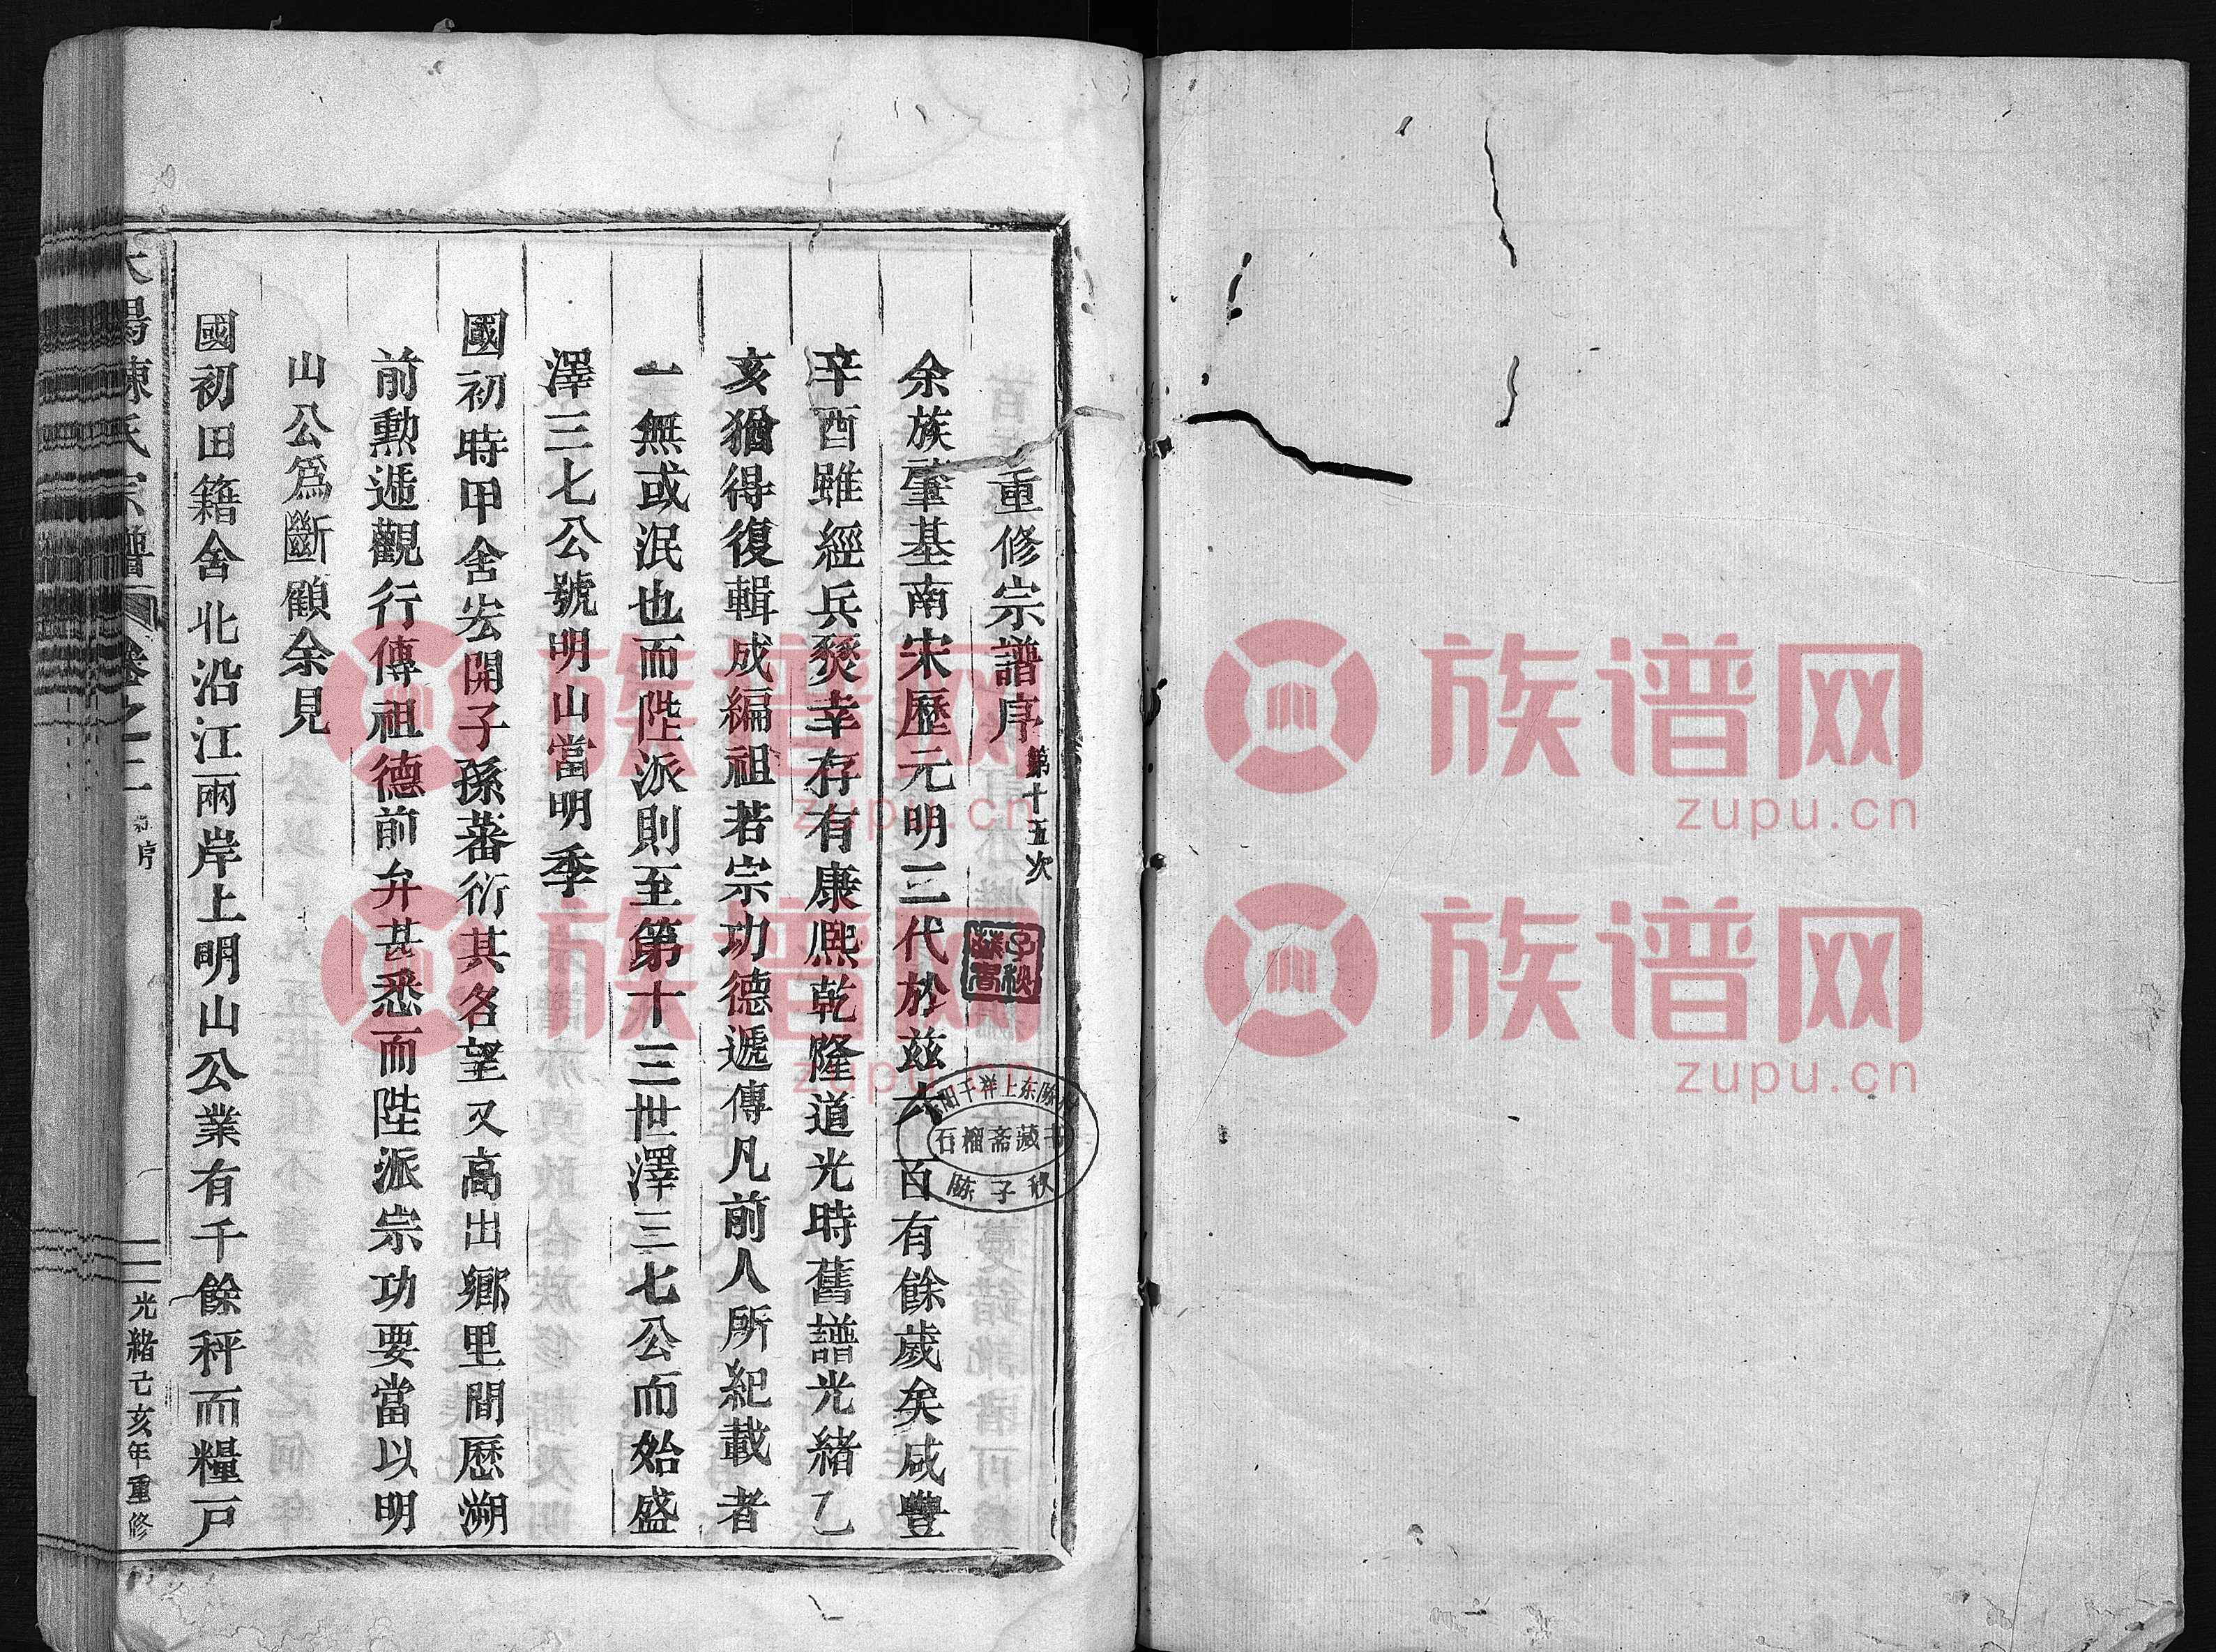 重修宗譜序 第十五次
余族肇基南宋歷元明三代於茲六百有餘歲矣咸豐
辛酉雖經兵燹幸存有康熙乾隆道光時舊譜光緒乙
亥猶得復輯成編祖若宗功德遞傳凡前人所紀載者
一無或泯也而陞派則至第十三世澤三七公而始盛
澤三七公號明山當明季
國初時甲舍宏開子孫蕃衍其名望又高出鄉里間歷溯
前勳遞觀行傳祖德前弁甚悉而陞派崇功要當以明
山公為斷顧余見
國初田籍舍北沿江兩岸上明山公業有千餘秤而糧戶
陳氏宗譜 卷之二 序
光緒己亥年重修
子秋
石榴斋藏书
陈子秋
族谱网
zupu.cn
族谱网
zupu.cn
族谱网
zupu.cn
族谱网
zupu.cn